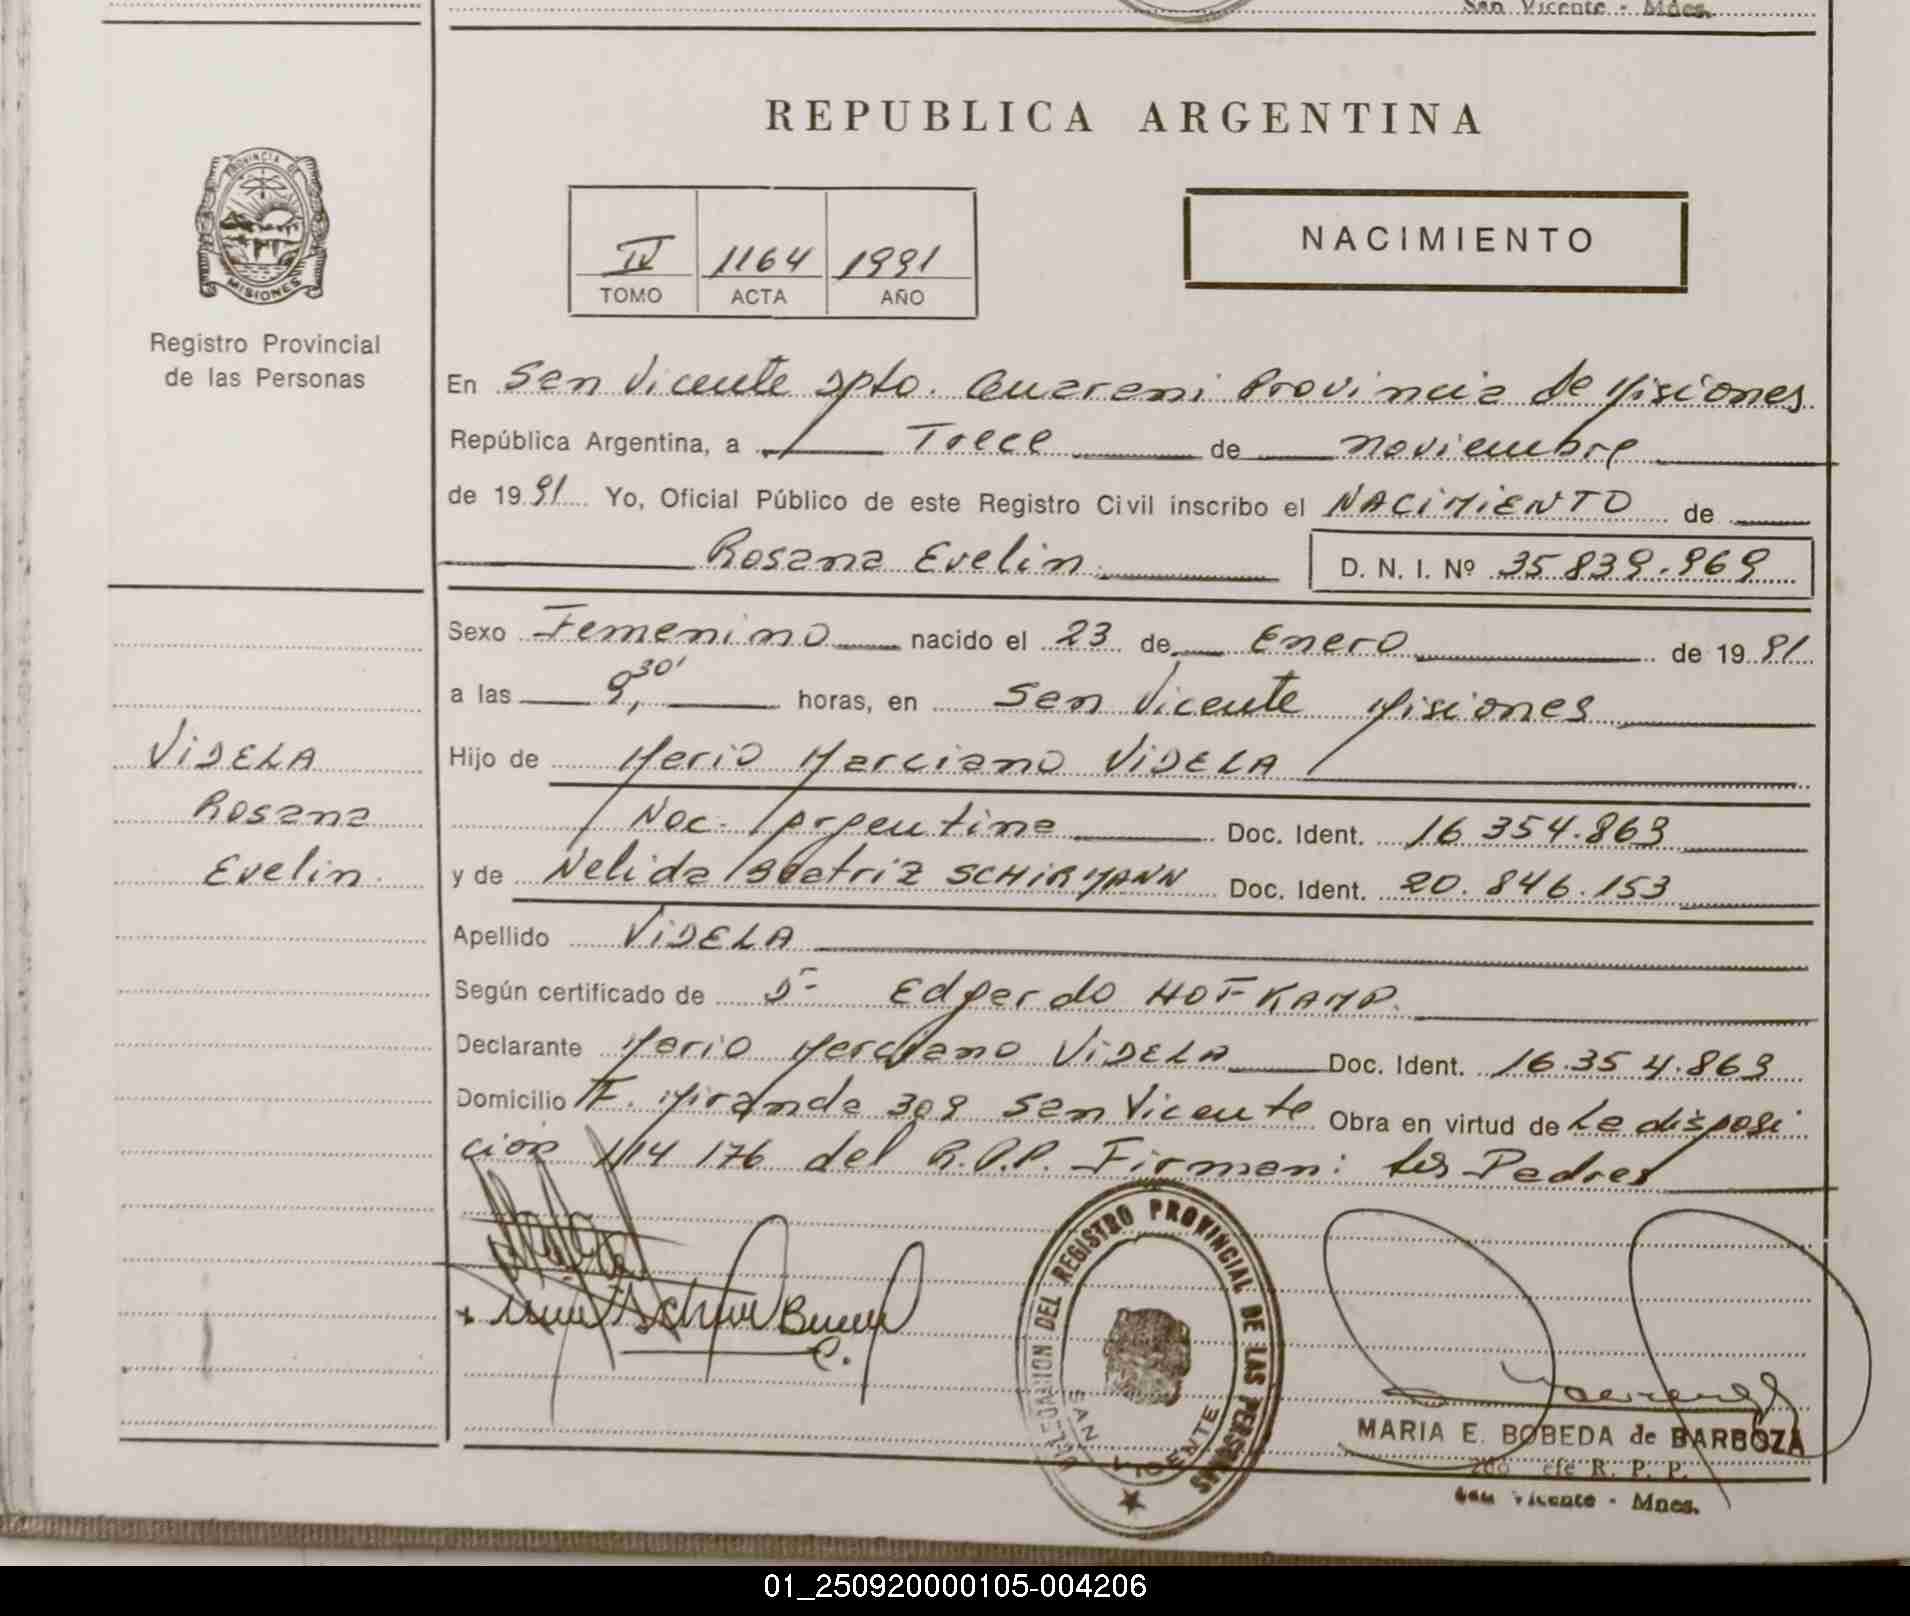 San Vicente - Mnes.
REPUBLICA ARGENTINA
PROVINCIA DE
MISIONES
Registro Provincial
de las Personas
IV 1164 1991
TOMO ACTA AÑO
NACIMIENTO
En San Vicente Dpto. Guarani Provincia de Misiones
República Argentina, a Trece de noviembre
de 1991 Yo, Oficial Público de este Registro Civil inscribo el NACIMIENTO de
Rosana Evelin D. N. I. Nº 35 839.969
Sexo Femenino nacido el 23 de Enero de 1991
a las 9,30' horas, en San Vicente Misiones
Hijo de Mario Marciano VIDELA
Nac. Argentina Doc. Ident. 16.354.869
y de Nelida Beatriz SCHIRMANN Doc. Ident. 20.846.153
Apellido VIDELA
Según certificado de Dr Edgardo HOFKAMP.
Declarante Mario Marciano VIDELA Doc. Ident. 16.354.869
Domicilio F. Miranda 309 San Vicente Obra en virtud de La disposi
cion 114 176 del R.P.P. Firman: los Padres
VIDELA
Rosana
Evelin.
DELEGACION DEL REGISTRO PROVINCIAL DE LAS PERSONAS
SAN VICENTE
MARIA E. BOBEDA de BARBOZA
2do efe R. P. P.
San Vicente - Mnes.
01_250920000105-004206